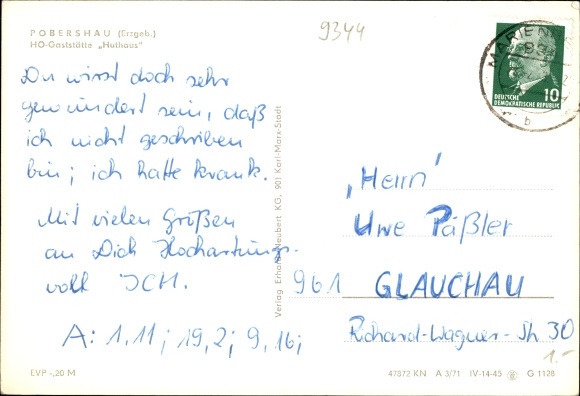 POBERSHAU (Erzgeb.)
HO-Gaststätte „Huthaus"
9344
MARIENB
b
10
DEUTSCHE
DEMOKRATISCHE REPUBLIK
Du wirst doch sehr
gewundert sein, daß
ich nicht geschrieben
bin; ich hatte krank.
Mit vielen Grüßen
an Dich Hochachtungs-
voll ICH.
A: 1,11; 19,2; 9,16;
Verlag Erhard Neubert KG, 901 Karl-Marx-Stadt
"Herrn"
Uwe Päßler
961 GLAUCHAU
Richard-Wagner-Str 30
1.-
EVP -,20 M
47372 KN A 3/71 IV-14-45 G 1128